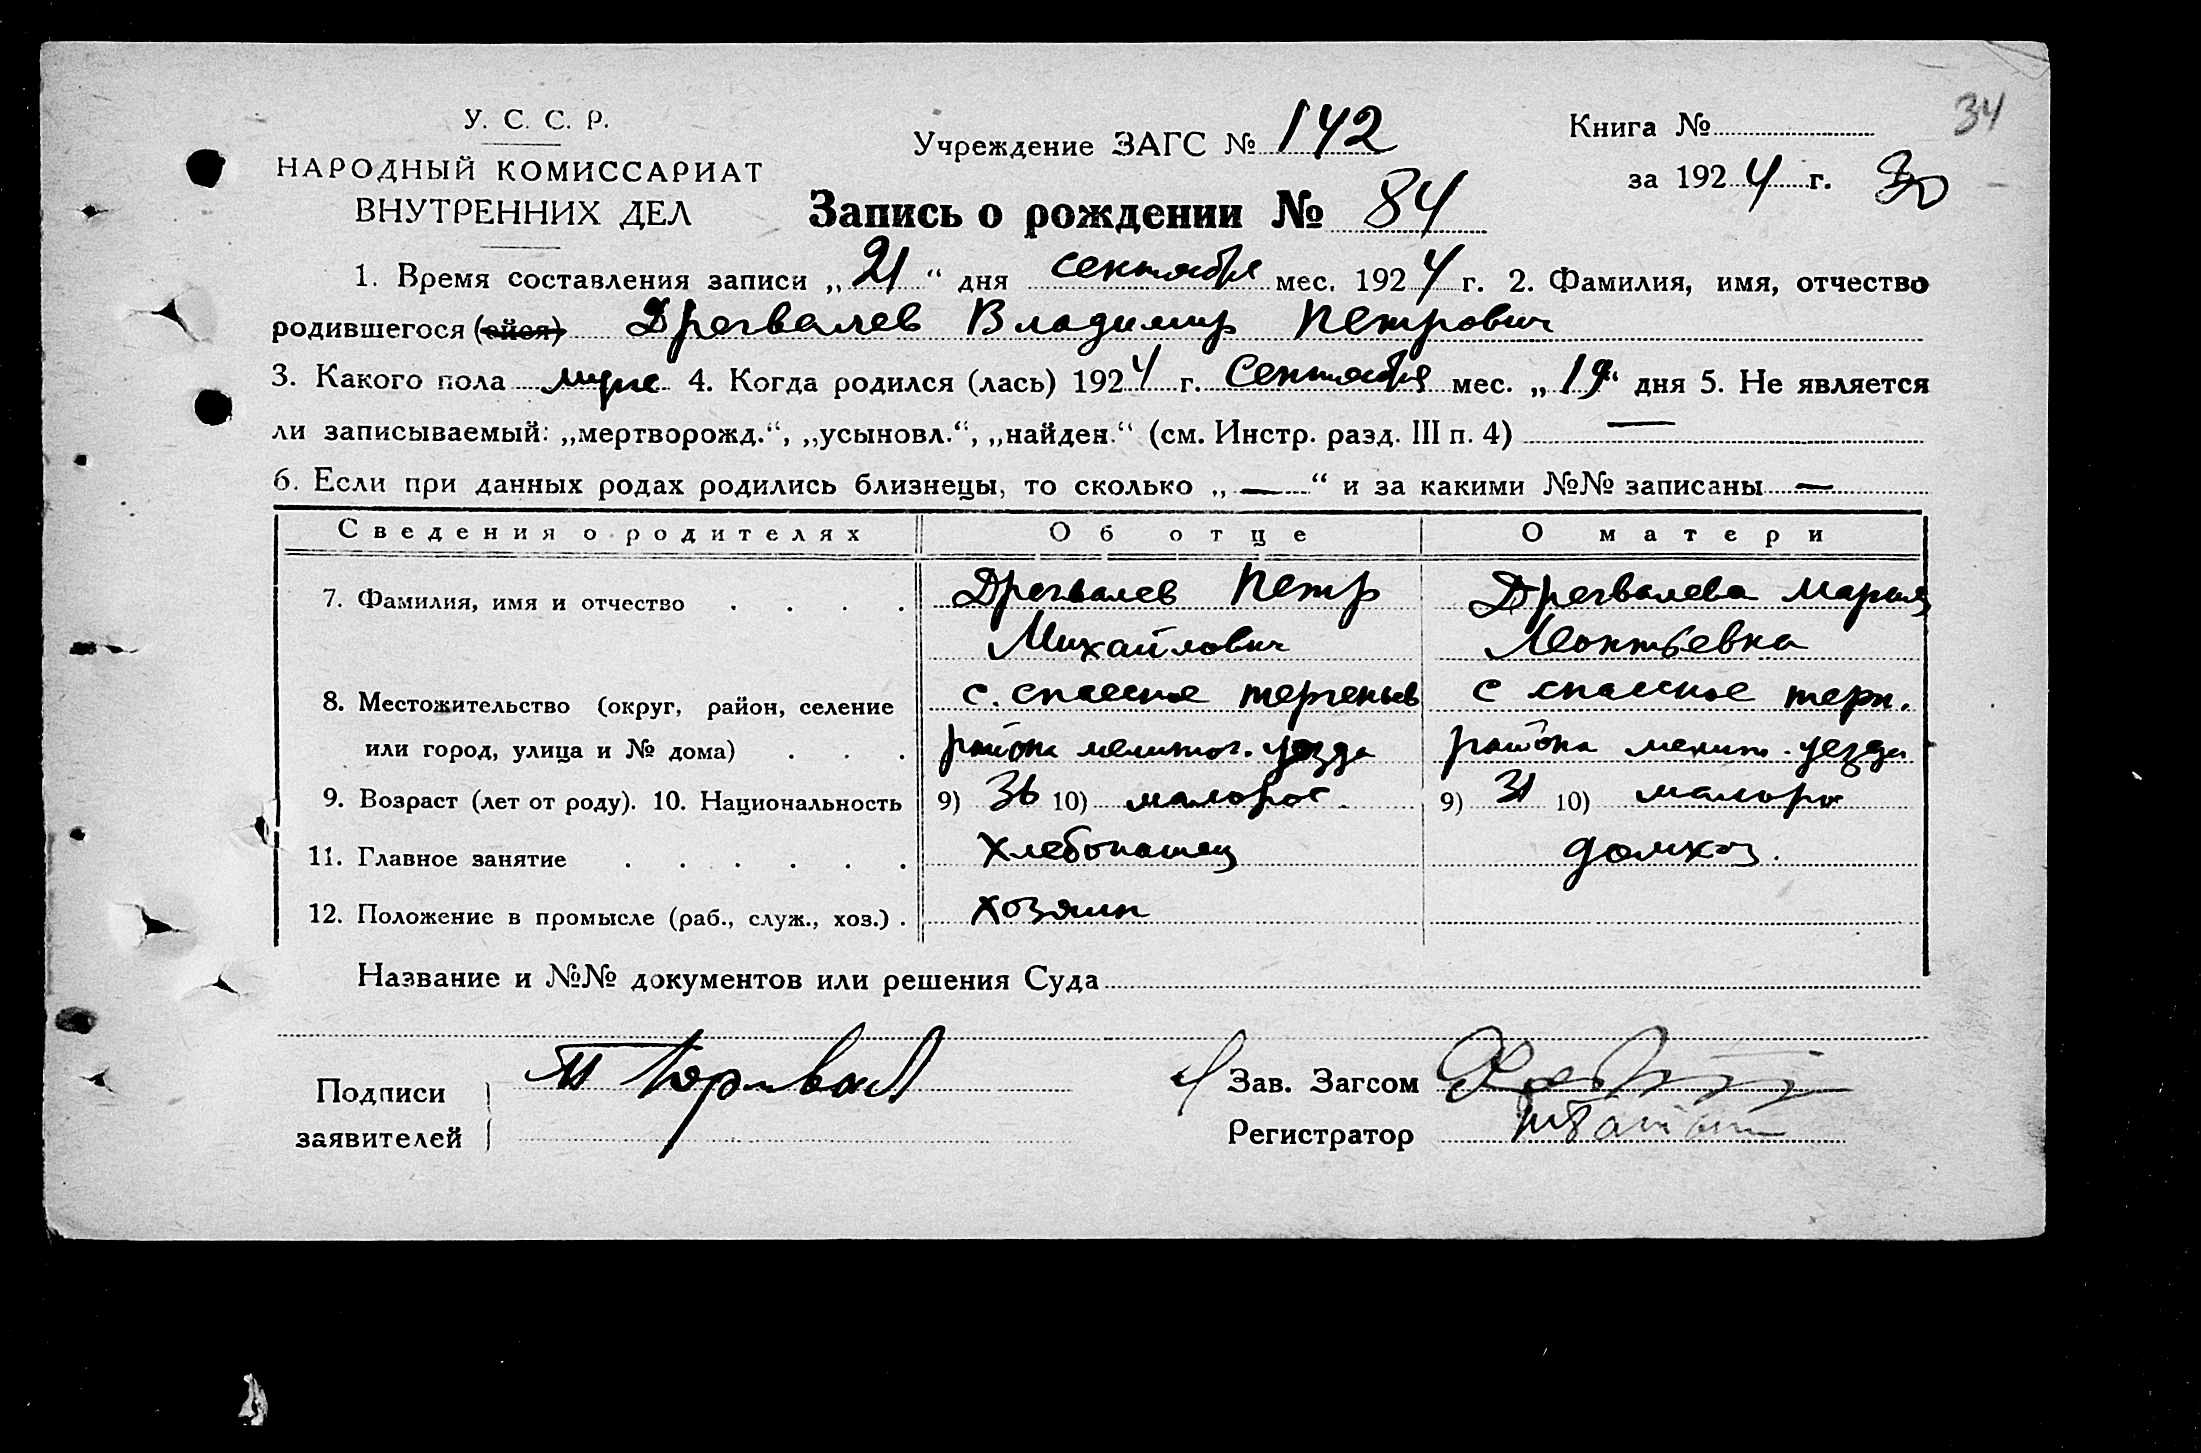 34
У. С. С. Р.
НАРОДНЫЙ КОМИССАРИАТ
ВНУТРЕННИХ ДЕЛ
Учреждение ЗАГС № 142
Книга №
за 1924 г. 30
Запись о рождении № 84
1. Время составления записи „21“ дня сентября мес. 1924 г. 2. Фамилия, имя, отчество
родившегося (ейся) Дрегвалев Владимир Петрович
3. Какого пола муже 4. Когда родился (лась) 1924 г. Сентября мес. „19“ дня 5. Не является
ли записываемый: „мертворожд.“, „усыновл.“, „найден.“ (см. Инстр. разд. III п. 4) —
6. Если при данных родах родились близнецы, то сколько „—“ и за какими №№ записаны —
Сведения о родителях Об отце О матери
7. Фамилия, имя и отчество . . . . Дрегвалев Петр Дрегвалева Мария
Михайлович Леонтьевна
8. Местожительство (округ, район, селение с. спасское с спасское терп.
или город, улица и № дома) . . . района мелитоп. уезда района мелит. уезда
9. Возраст (лет от роду). 10. Национальность 9) 36 10) малорос. 9) 31 10) малорос
11. Главное занятие . . . . . . Хлебопашец домхоз.
12. Положение в промысле (раб., служ., хоз.) . хозяин
Название и №№ документов или решения Суда
Подписи
заявителей
Зав. Загсом
Регистратор